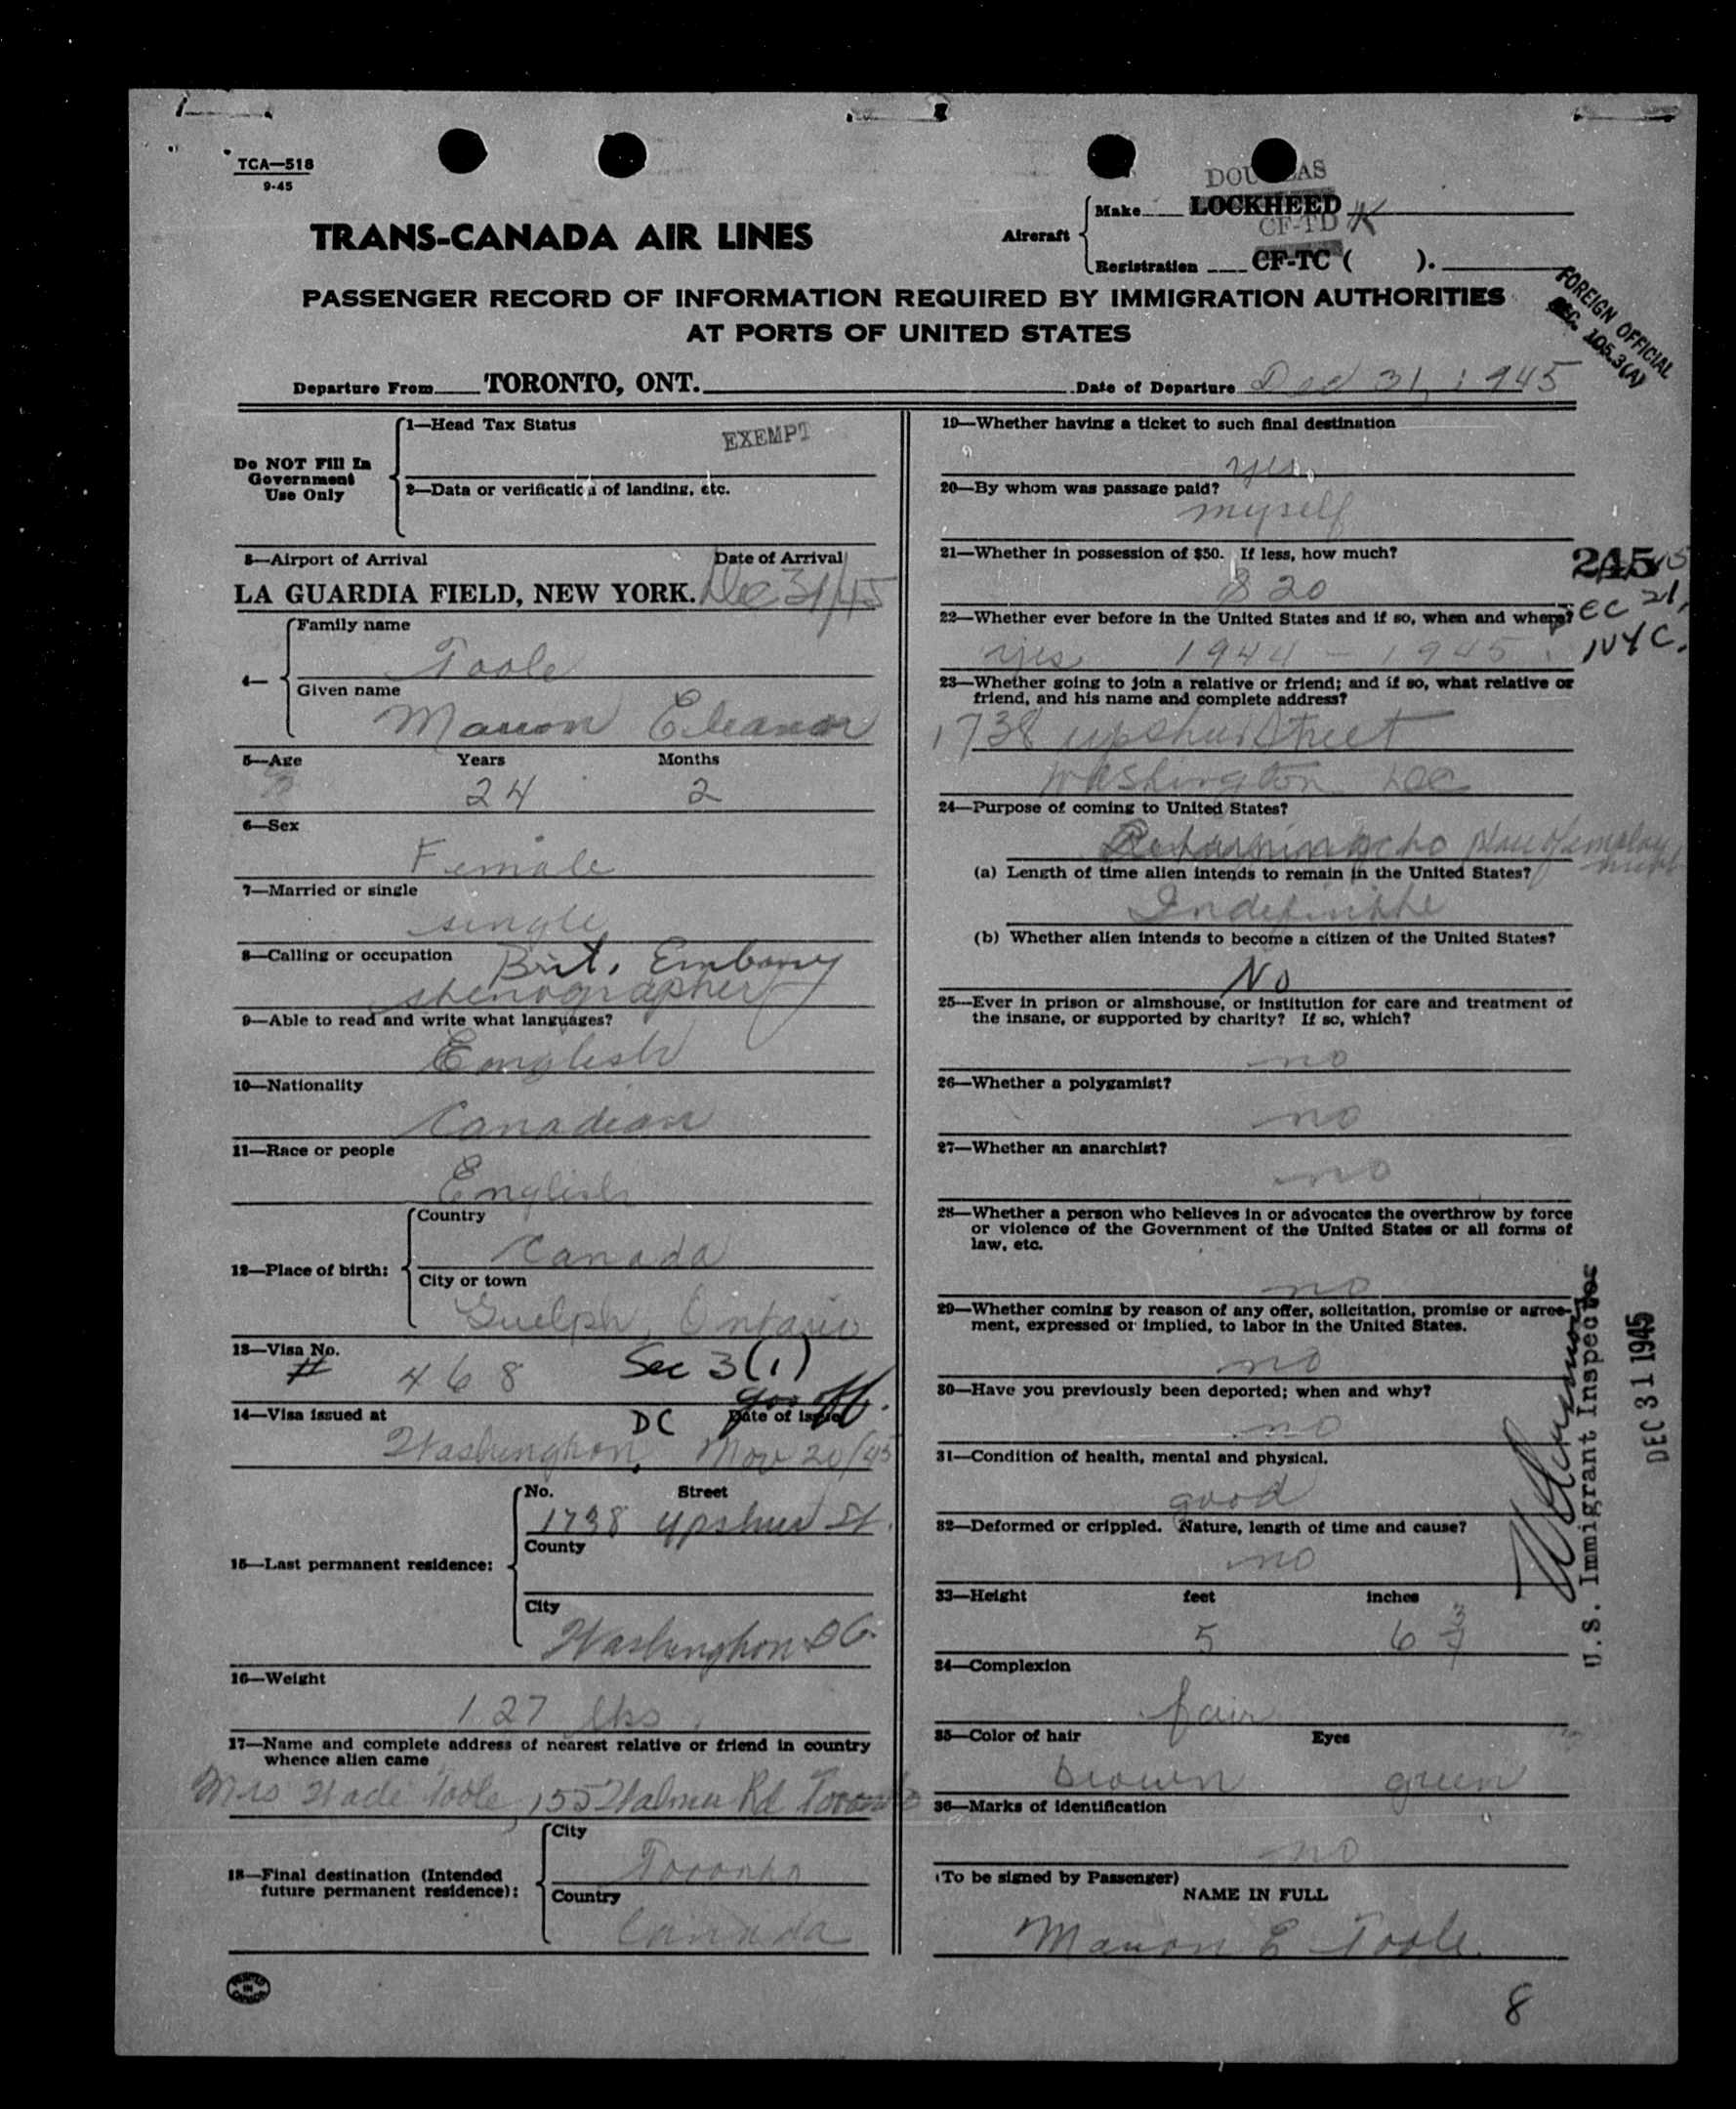 TCA—518
9-45
DOUGLAS
Make LOCKHEED
CF-TD K
TRANS-CANADA AIR LINES
Aircraft
Registration CF-TC ( ).
PASSENGER RECORD OF INFORMATION REQUIRED BY IMMIGRATION AUTHORITIES
AT PORTS OF UNITED STATES
FOREIGN OFFICIAL
SEC. 105.3(A)
Departure From TORONTO, ONT. Date of Departure Dec 31, 1945
Do NOT Fill In
Government
Use Only
1—Head Tax Status
EXEMPT
2—Data or verification of landing, etc.
3—Airport of Arrival Date of Arrival
LA GUARDIA FIELD, NEW YORK. Dec 31/45
4—
Family name
Toole
Given name
Marion Eleanor
5—Age Years Months
24 2
6—Sex
Female
7—Married or single
single
8—Calling or occupation Brit. Embassy
stenographer
9—Able to read and write what languages?
English
10—Nationality
Canadian
11—Race or people
English
12—Place of birth:
Country
Canada
City or town
Guelph, Ontario
13—Visa No.
# 468 Sec 3(1)
14—Visa issued at DC Date of issue
Washington, Nov 20/45
15—Last permanent residence:
No. Street
1738 Upshur St.
County
City
Washington DC.
16—Weight
127 lbs.
17—Name and complete address of nearest relative or friend in country
whence alien came
Mrs Wade Toole, 155 Walmer Rd Toronto
18—Final destination (Intended
future permanent residence):
City
Toronto
Country
Canada
PRINTED
IN
CANADA
19—Whether having a ticket to such final destination
yes
20—By whom was passage paid?
myself
21—Whether in possession of $50. If less, how much?
$20
245
22—Whether ever before in the United States and if so, when and where?
Dec 21,
yes 1944 - 1945. NYC.
23—Whether going to join a relative or friend; and if so, what relative or
friend, and his name and complete address?
1738 Upshur Street
Washington DC
24—Purpose of coming to United States?
Returning to place of employment
(a) Length of time alien intends to remain in the United States?
Indefinite
(b) Whether alien intends to become a citizen of the United States?
No
25—Ever in prison or almshouse, or institution for care and treatment of
the insane, or supported by charity? If so, which?
no
26—Whether a polygamist?
no
27—Whether an anarchist?
no
28—Whether a person who believes in or advocates the overthrow by force
or violence of the Government of the United States or all forms of
law, etc.
no
29—Whether coming by reason of any offer, solicitation, promise or agree-
ment, expressed or implied, to labor in the United States.
no
30—Have you previously been deported; when and why?
no
31—Condition of health, mental and physical.
good
32—Deformed or crippled. Nature, length of time and cause?
no
33—Height feet inches
5 6 3/4
34—Complexion
fair
35—Color of hair Eyes
brown green
36—Marks of identification
no
(To be signed by Passenger)
NAME IN FULL
Marion E Toole
U.S. Immigrant Inspector
DEC 31 1945
8